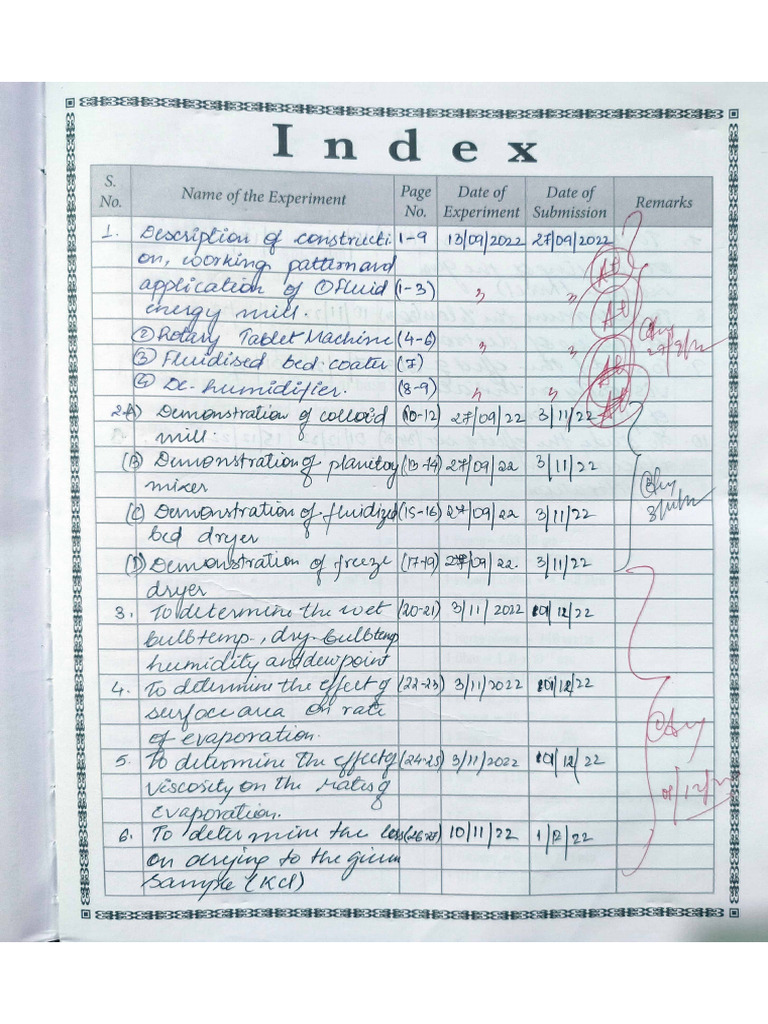 Index
S. No. Name of the Experiment Page No. Date of Experiment Date of Submission Remarks
1. Description of constructi 1-9 13/09/2022 27/09/2022
on, working pattern and
application of ① Fluid (1-3) " "
energy mill.
② Rotary Tablet Machine (4-6) " "
③ Fluidised bed coater (7) " "
④ De-humidifier. (8-9) " "
2.A) Demonstration of colloid (10-12) 27/09/22 3/11/22
mill.
(B) Demonstration of planetory (13-14) 27/09/22 3/11/22
mixer
(C) Demonstration of fluidized (15-16) 27/09/22 3/11/22
bed dryer
(D) Demonstration of freeze (17-19) 27/09/22. 3/11/22
dryer
3. To determine the wet (20-21) 3/11/2022 01/12/22
bulb temp., dry-bulb temp
humidity and dew point
4. To determine the effect of (22-23) 3/11/2022 01/12/22
surface area on rate
of evaporation.
5. To determine the effect of (24-25) 3/11/2022 01/12/22
viscosity on the rate of
evaporation.
6. To determine the loss (26-27) 10/11/22 1/12/22
on drying to the given
Sample (KCl)